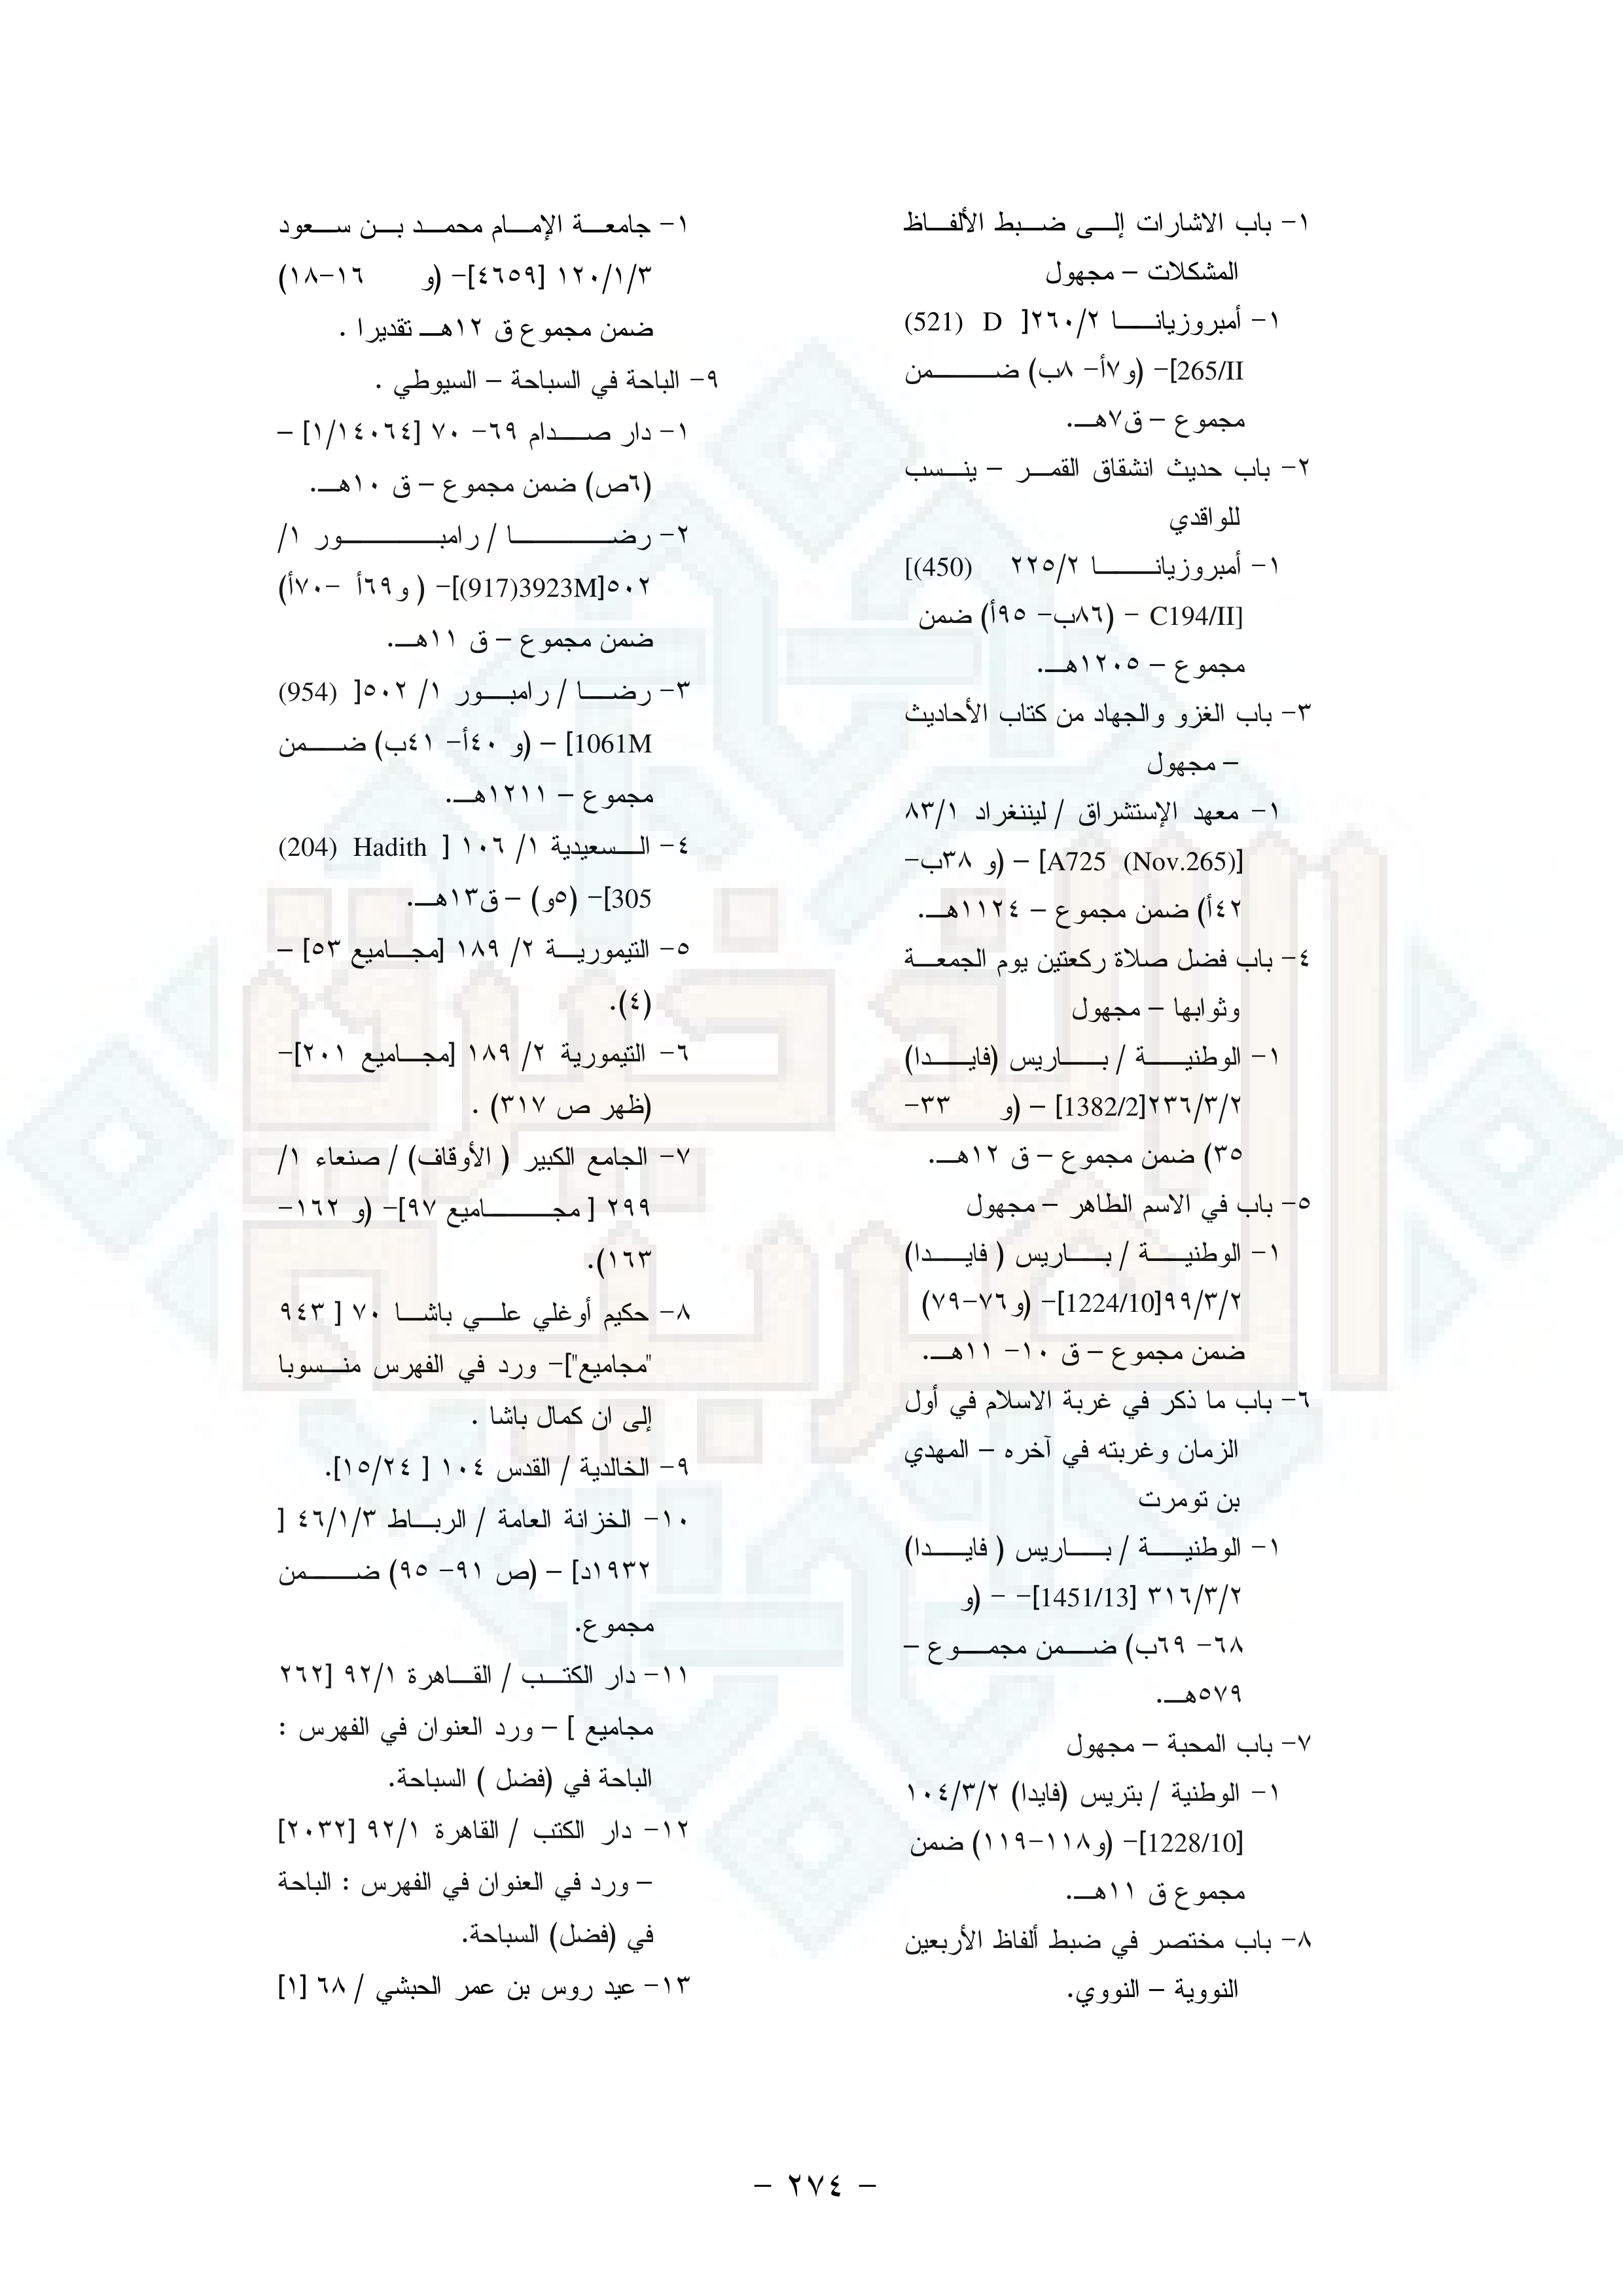 ١- باب الاشارات إلى ضبط الألفاظ
المشكلات – مجهول
١- أمبروزيانا ٢٦٠/٢[ D (521)
265/II]- (و٧أ- ٨ب) ضمن
مجموع – ق٧هـ.
٢- باب حديث انشقاق القمر – ينسب
للواقدي
١- أمبروزيانا ٢٢٥/٢ (450)]
C194/II] - (٨٦ب- ٩٥أ) ضمن
مجموع – ١٢٠٥هـ.
٣- باب الغزو والجهاد من كتاب الأحاديث
– مجهول
١- معهد الإستشراق / ليننغراد ٨٣/١
[A725 (Nov.265)] – (و ٣٨ب-
٤٢أ) ضمن مجموع – ١١٢٤هـ.
٤- باب فضل صلاة ركعتين يوم الجمعة
وثوابها – مجهول
١- الوطنية / باريس (فايدا)
٢٣٦/٣/٢[1382/2] – (و ٣٣-
٣٥) ضمن مجموع – ق ١٢هـ.
٥- باب في الاسم الطاهر – مجهول
١- الوطنية / باريس ( فايدا)
٩٩/٣/٢[1224/10]- (و٧٦-٧٩)
ضمن مجموع – ق ١٠- ١١هـ.
٦- باب ما ذكر في غربة الاسلام في أول
الزمان وغربته في آخره – المهدي
بن تومرت
١- الوطنية / باريس ( فايدا)
٣١٦/٣/٢ [1451/13]- - (و
٦٨- ٦٩ب) ضمن مجموع –
٥٧٩هـ.
٧- باب المحبة – مجهول
١- الوطنية / بتريس (فايدا) ١٠٤/٣/٢
[1228/10]- (و١١٨-١١٩) ضمن
مجموع ق ١١هـ.
٨- باب مختصر في ضبط ألفاظ الأربعين
النووية – النووي.
١- جامعة الإمام محمد بن سعود
١٢٠/١/٣ [٤٦٥٩]- (و ١٦-١٨)
ضمن مجموع ق ١٢هـ تقديرا .
٩- الباحة في السباحة – السيوطي .
١- دار صدام ٦٩- ٧٠ [١/١٤٠٦٤] –
(٦ص) ضمن مجموع – ق ١٠هـ.
٢- رضا / رامبور ١/
٥٠٢[3923M(917)]- ( و٦٩أ -٧٠أ)
ضمن مجموع – ق ١١هـ.
٣- رضا / رامبور ١/ ٥٠٢[ (954)
1061M] – (و ٤٠أ- ٤١ب) ضمن
مجموع – ١٢١١هـ.
٤- السعيدية ١/ ١٠٦ [ Hadith (204)
305]- (٥و) – ق١٣هـ.
٥- التيمورية ٢/ ١٨٩ [مجاميع ٥٣] –
(٤).
٦- التيمورية ٢/ ١٨٩ [مجاميع ٢٠١]-
(ظهر ص ٣١٧) .
٧- الجامع الكبير ( الأوقاف) / صنعاء ١/
٢٩٩ [ مجاميع ٩٧]- (و ١٦٢-
١٦٣).
٨- حكيم أوغلي علي باشا ٧٠ [ ٩٤٣
"مجاميع"]- ورد في الفهرس منسوبا
إلى ان كمال باشا .
٩- الخالدية / القدس ١٠٤ [ ١٥/٢٤].
١٠- الخزانة العامة / الرباط ٤٦/١/٣ [
١٩٣٢د] – (ص ٩١- ٩٥) ضمن
مجموع.
١١- دار الكتب / القاهرة ٩٢/١ [٢٦٢
مجاميع ] – ورد العنوان في الفهرس :
الباحة في (فضل ) السباحة.
١٢- دار الكتب / القاهرة ٩٢/١ [٢٠٣٢]
– ورد في العنوان في الفهرس : الباحة
في (فضل) السباحة.
١٣- عيد روس بن عمر الحبشي / ٦٨ [١]
– ٢٧٤ –